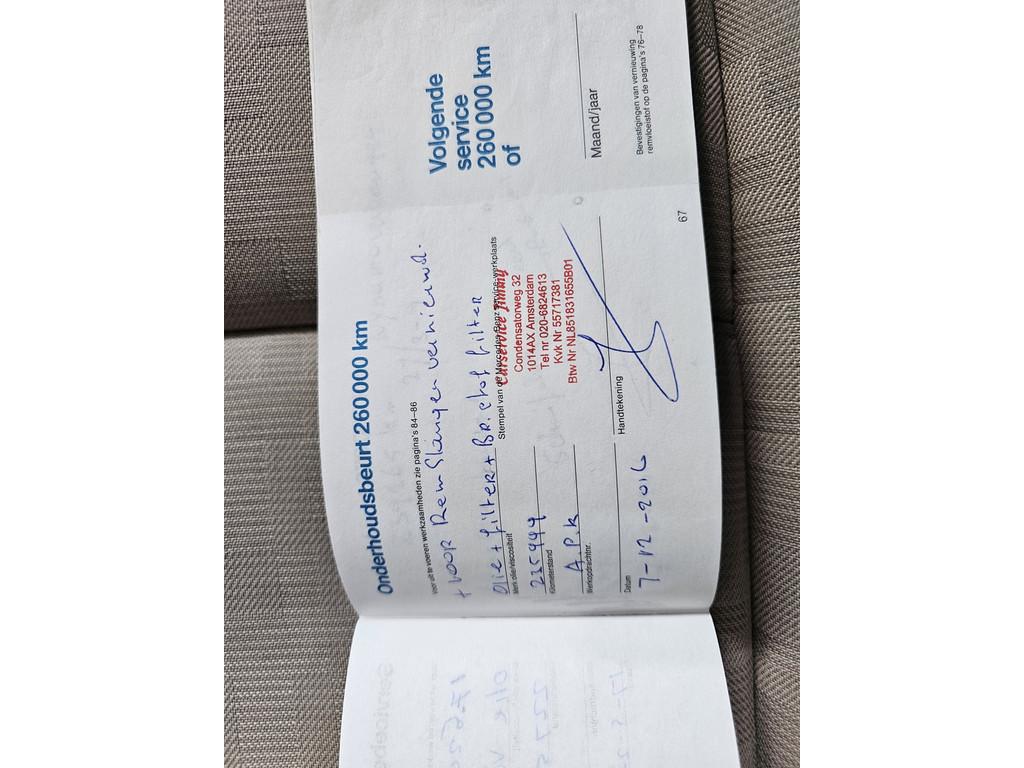 Onderhoudsbeurt 260 000 km
Voor uit te voeren werkzaamheden zie pagina's 84–86
+ voor Remslangen vernieuwd.
olie + filter + Br.stof filter
Merk olie/viscositeit
Stempel van de Mercedes-Benz Service-werkplaats
Carservice Jimmy
Condensatorweg 32
1014AX Amsterdam
Tel nr 020-6824613
Kvk Nr 55717381
Btw Nr NL851831655B01
Kilometerstand
A.P.K
Werkopdrachtnr.
Datum
7-12-2016
Handtekening
67
Volgende
service
260 000 km
of
Maand/jaar
Bevestigingen van vernieuwing
remvloeistof op de pagina's 76–78